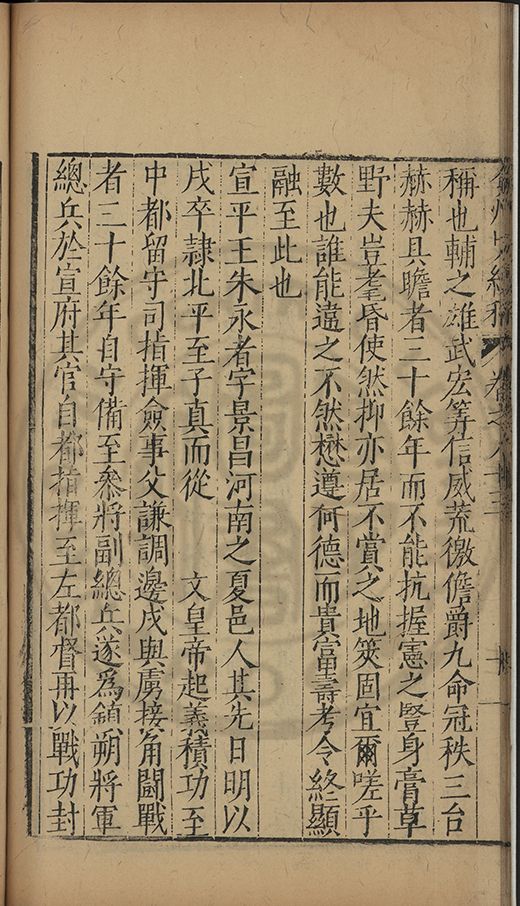 弇州史料
卷之八十三
稱也輔之雄武宏等信威荒徼儋爵九命冠秩三台
赫赫具瞻者三十餘年而不能抗握憲之豎身膏草
野夫豈耄昏使然抑亦居不賞之地筴固宜爾嗟乎
數也誰能違之不然懋遵何德而貴富壽考令終顯
融至此也
宣平王朱永者字景昌河南之夏邑人其先曰明以
戍卒隷北平至子真而從 文皇帝起義積功至
中都留守司指揮僉事父謙調邊戍與虜接角闘戰
者三十餘年自守備至叅將副總兵遂爲鎮朔將軍
總兵於宣府其官自都指揮至左都督再以戰功封